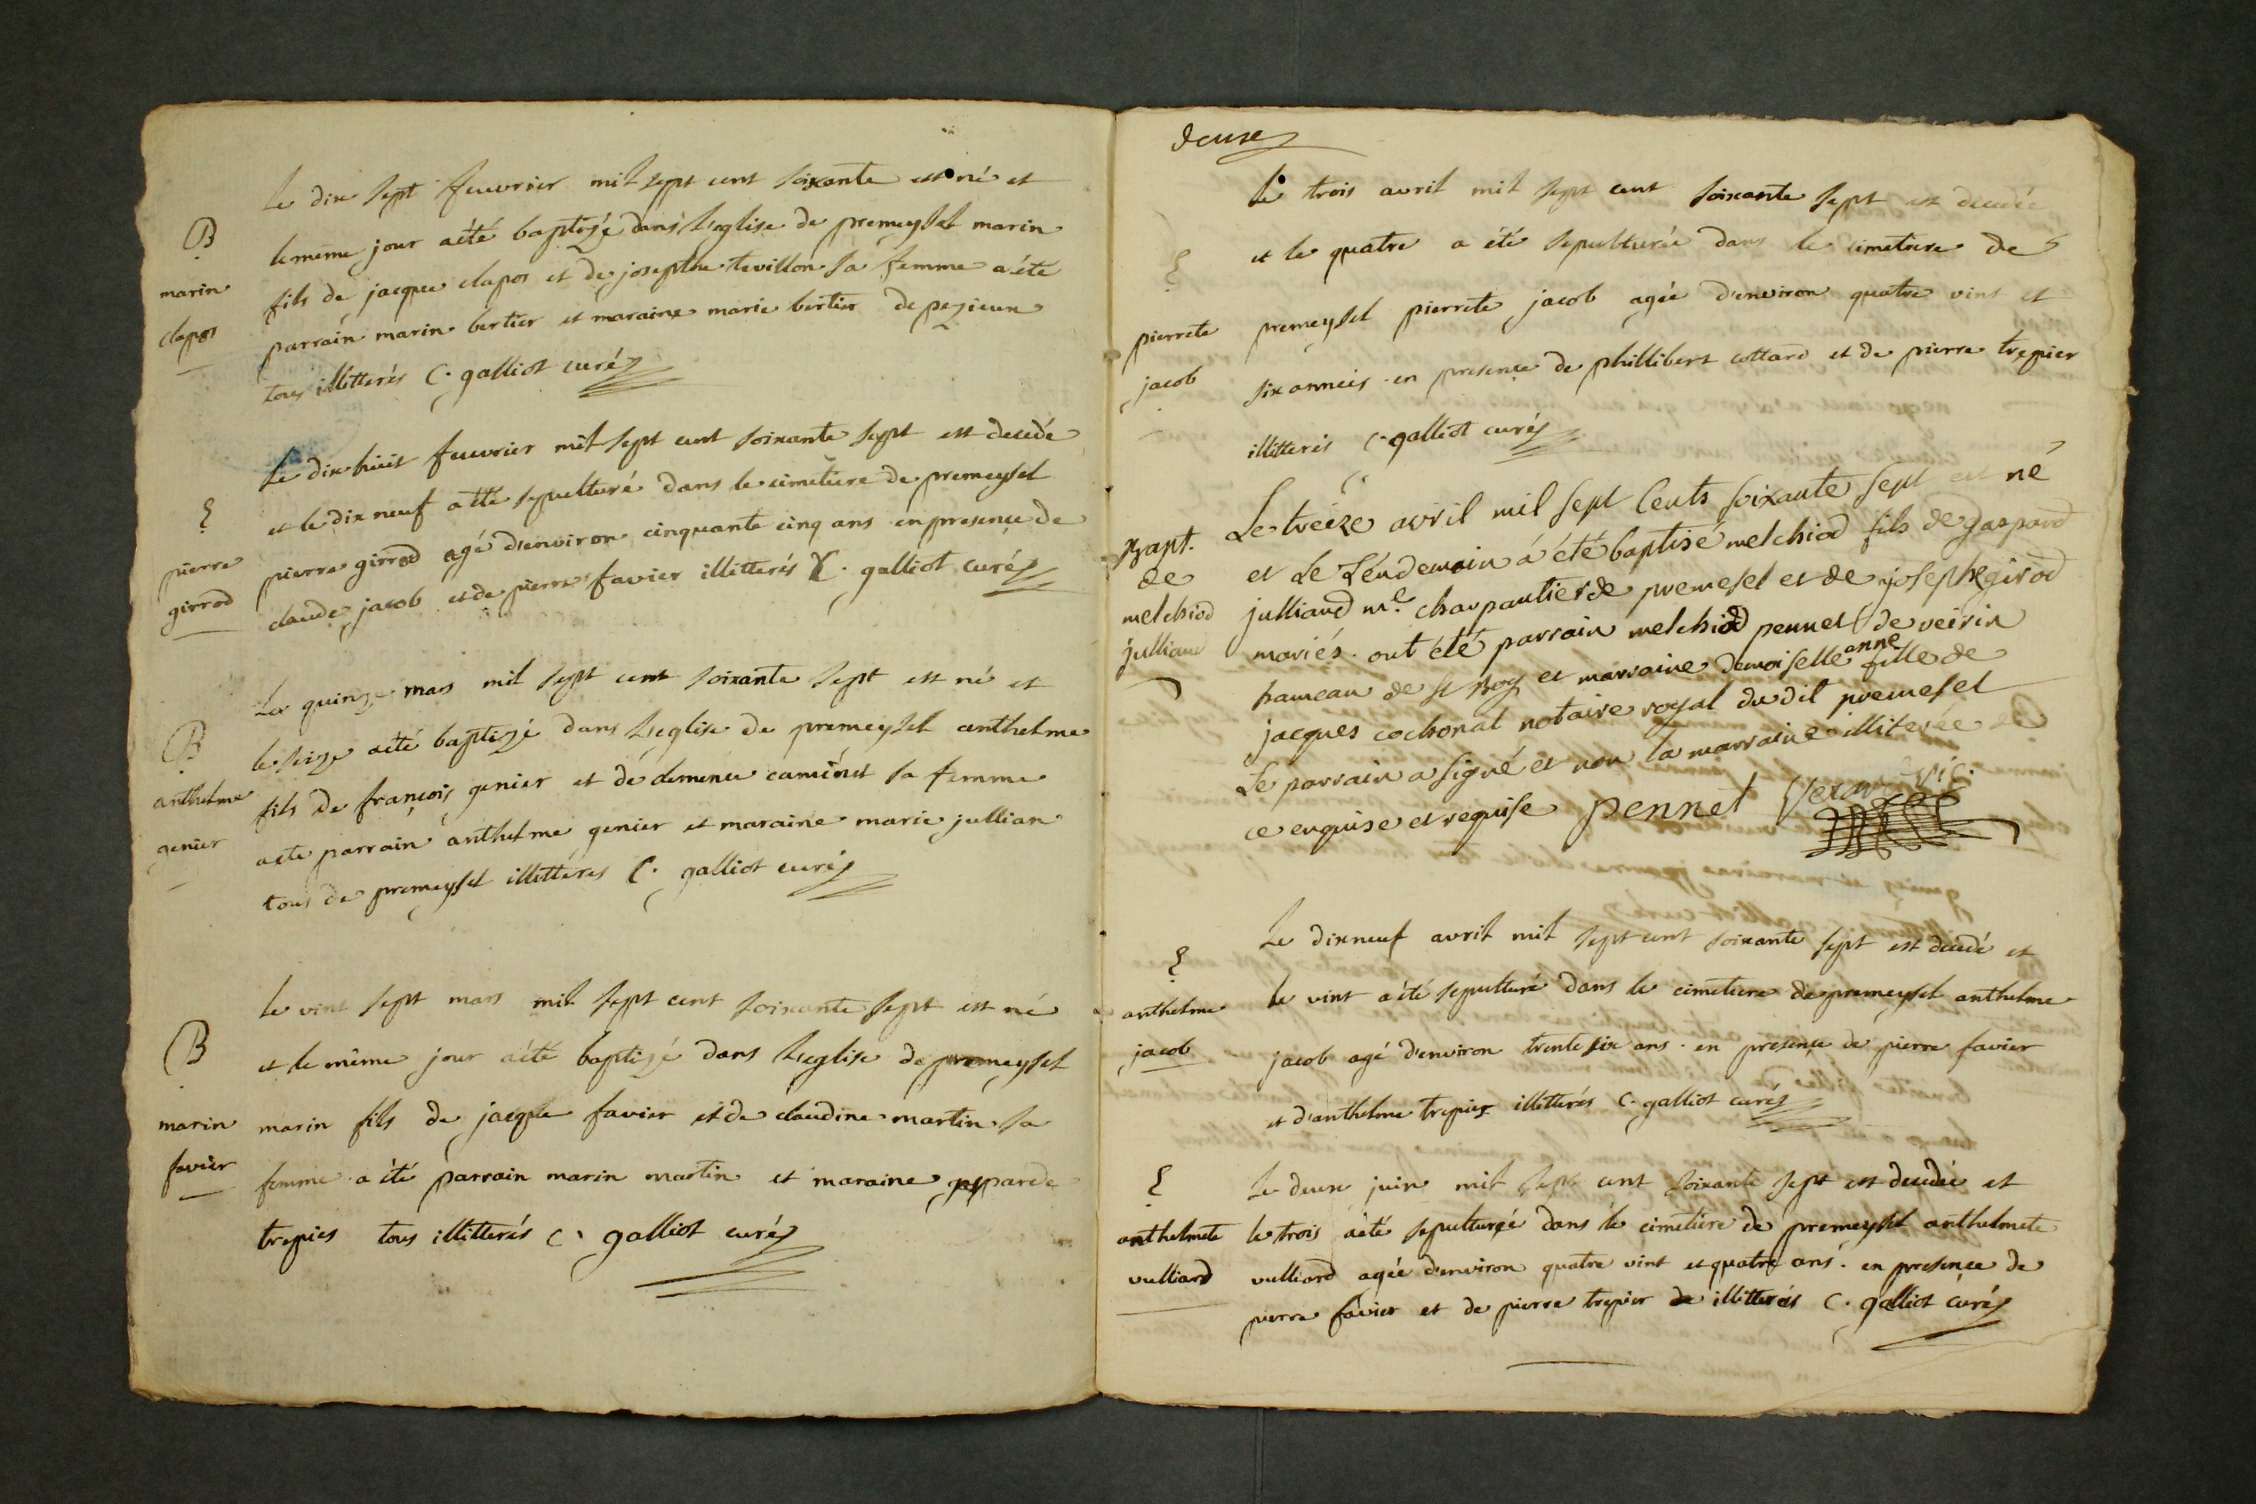 B
marin
clapos
Le dix sept feuvrier mil sept cent soixante est né et
le même jour a été baptizé dans l'eglise de premeysel marin
fils de jacque clapos et de josephte tevillon sa femme a été
parrain marin bertier et maraine marie bertier de pezieux
tous illitterés C. galliot curé
S
pierre
girrod
Le dix huit feuvrier mil sept cent soixante sept est decedé
et le dix neuf a été sepulturé dans le cimetiere de premeysel
pierre girrod agé d'environ cinquante cinq ans en presence de
claude jacob et de pierre favier illitterés C. galliot curé
B
anthelme
genier
Le quinze mars mil sept cent soixante sept est né et
le seize a été baptizé dans l'eglise de premeysel anthelme
fils de françois genier et de clemence caminet sa femme
a été parrain anthelme genier et maraine marie jullian
tous de premeysel illitterés C. galliot curé
B
marin
favier
le vint sept mars mil sept cent soixante sept est né
et le même jour a été baptizé dans l'eglise de premeysel
marin fils de jacque favier et de claudine martin sa
femme a été parrain marin martin et maraine gasparde
trepier tous illitterés C. galliot curé
deuxe
S
pierrete
jacob
Le trois avril mil sept cent soixante sept est decedée
et le quatre a été sepulturée dans le cimetiere de
premeysel pierrete jacob agée d'environ quatre vint et
six années en presence de phillibert cottard et de pierre trepier
illitterés C. galliot curé
Bapt.
de
melchiod
julliand
Le treize avril mil sept Cents soixante sept est né
et Le Lendemain à été baptisé melchiod fils de gaspard
julliand me. charpantier de premesel et de josephe girod
mariés. ont été parrain melchiod pennet de veirin
hameau de st Boy et marraine demoiselle anne fille de
jacques cochonat notaire royal du dit premesel
Le parrain a signé et non la marraine illiterée de
ce enquise et requise pennet vic.
S
anthelme
jacob
Le dix neuf avril mil sept cent soixante sept est decedé et
le vint a été sepulturé dans le cimetiere de premeysel anthelme
jacob agé d'environ trente six ans. en presence de pierre favier
et d'anthelme trepier illitterés C. galliot curé
S
anthelmete
vulliard
Le deux juin mil sept cent soixante sept est decedée et
le trois a été sepulturée dans le cimetiere de premeysel anthelmete
vulliard agée d'environ quatre vint et quatre ans. en presence de
pierre favier et de pierre trepier de illitterés C. galliot curé